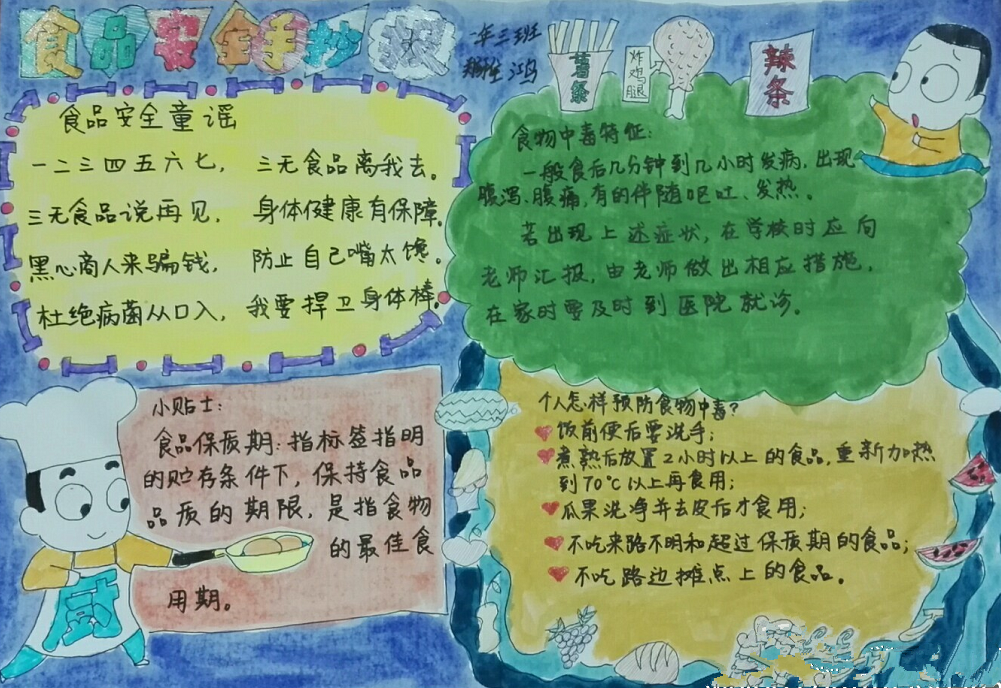 食品安全手抄报
年三班
薯条
炸鸡腿
辣条
食品安全童谣
一二三四五六七， 三无食品离我去。
三无食品说再见， 身体健康有保障。
黑心商人来骗钱， 防止自己嘴太馋。
杜绝病菌从口入， 我要捍卫身体棒。
食物中毒特征：
一般食后几分钟到几小时发病，出现
腹泻、腹痛，有的伴随呕吐、发热。
若出现上述症状，在学校时应向
老师汇报，由老师做出相应措施，
在家时要及时到医院就诊。
小贴士：
食品保质期：指标签指明
的贮存条件下，保持食品
品质的期限，是指食物
的最佳食
用期。
个人怎样预防食物中毒？
饭前便后要洗手；
煮熟后放置2小时以上的食品，重新加热
到70℃以上再食用；
瓜果洗净并去皮后才食用；
不吃来路不明和超过保质期的食品；
不吃路边摊点上的食品。